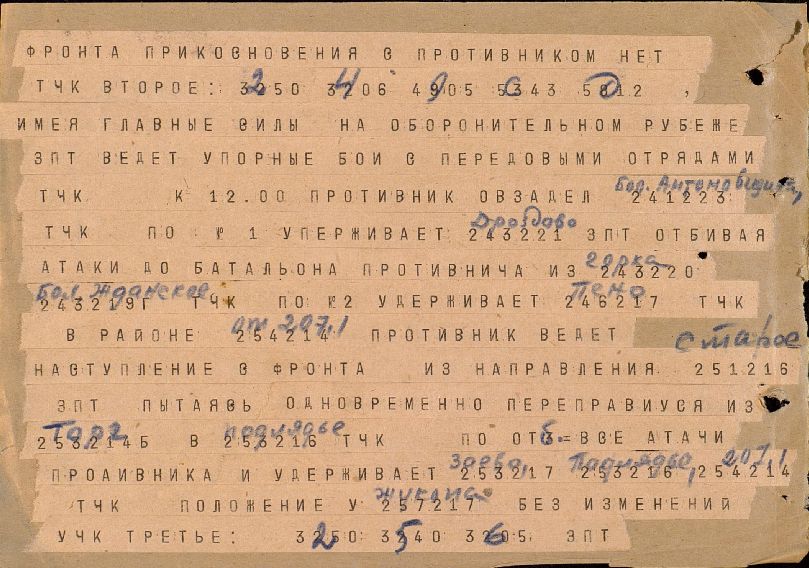 ФРОНТА ПРИКОСНОВЕНИЯ С ПРОТИВНИКОМ НЕТ
ТЧК ВТОРОЕ: 3250 3206 4905 5343 5812 ,
2 4 9 С Д
ИМЕЯ ГЛАВНЫЕ СИЛЫ НА ОБОРОНИТЕЛЬНОМ РУБЕЖЕ
ЗПТ ВЕДЕТ УПОРНЫЕ БОИ С ПЕРЕДОВЫМИ ОТРЯДАМИ
Бол.
ТЧК К 12.00 ПРОТИВНИК ОВЗАДЕЛ 241223
Дроздово
ТЧК ПО № 1 УПЕРЖИВАЕТ 243221 ЗПТ ОТБИВАЯ
горка
АТАКИ ДО БАТАЛЬОНА ПРОТИВНИЧА ИЗ 243220
Бол. Жданское Пено
243219Г ТЧК ПО №2 УДЕРЖИВАЕТ 246217 ТЧК
от 207,1
В РАЙОНЕ 254214 ПРОТИВНИК ВЕДЕТ
Старое
НАСТУПЛЕНИЕ С ФРОНТА ИЗ НАПРАВЛЕНИЯ 251216
ЗПТ ПЫТАЯСЬ ОДНОВРЕМЕННО ПЕРЕПРАВИУСЯ ИЗ
Торг Подлядье б
253214Б В 253216 ТЧК ПО ОТ = ВСЕ АТАЧИ
Заево, Подлядье, 207,1
ПРОАИВНИКА И УДЕРЖИВАЕТ 253217 253216, 254214
Жукопа
ТЧК ПОЛОЖЕНИЕ У 257217 БЕЗ ИЗМЕНЕНИЙ
УЧК ТРЕТЬЕ: 3250 3340 3205 ЗПТ
2 5 6